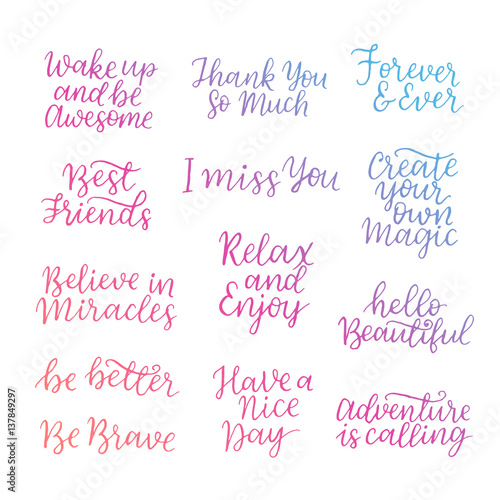 Wake up
and be
Awesome
Thank You
So Much
Forever
& Ever
Best
Friends
I miss You
Create
your
own
Magic
Believe in
Miracles
Relax
and
Enjoy
hello
Beautiful
be better
Be Brave
Have a
Nice
Day
Adventure
is calling
Adobe Stock | #137849297